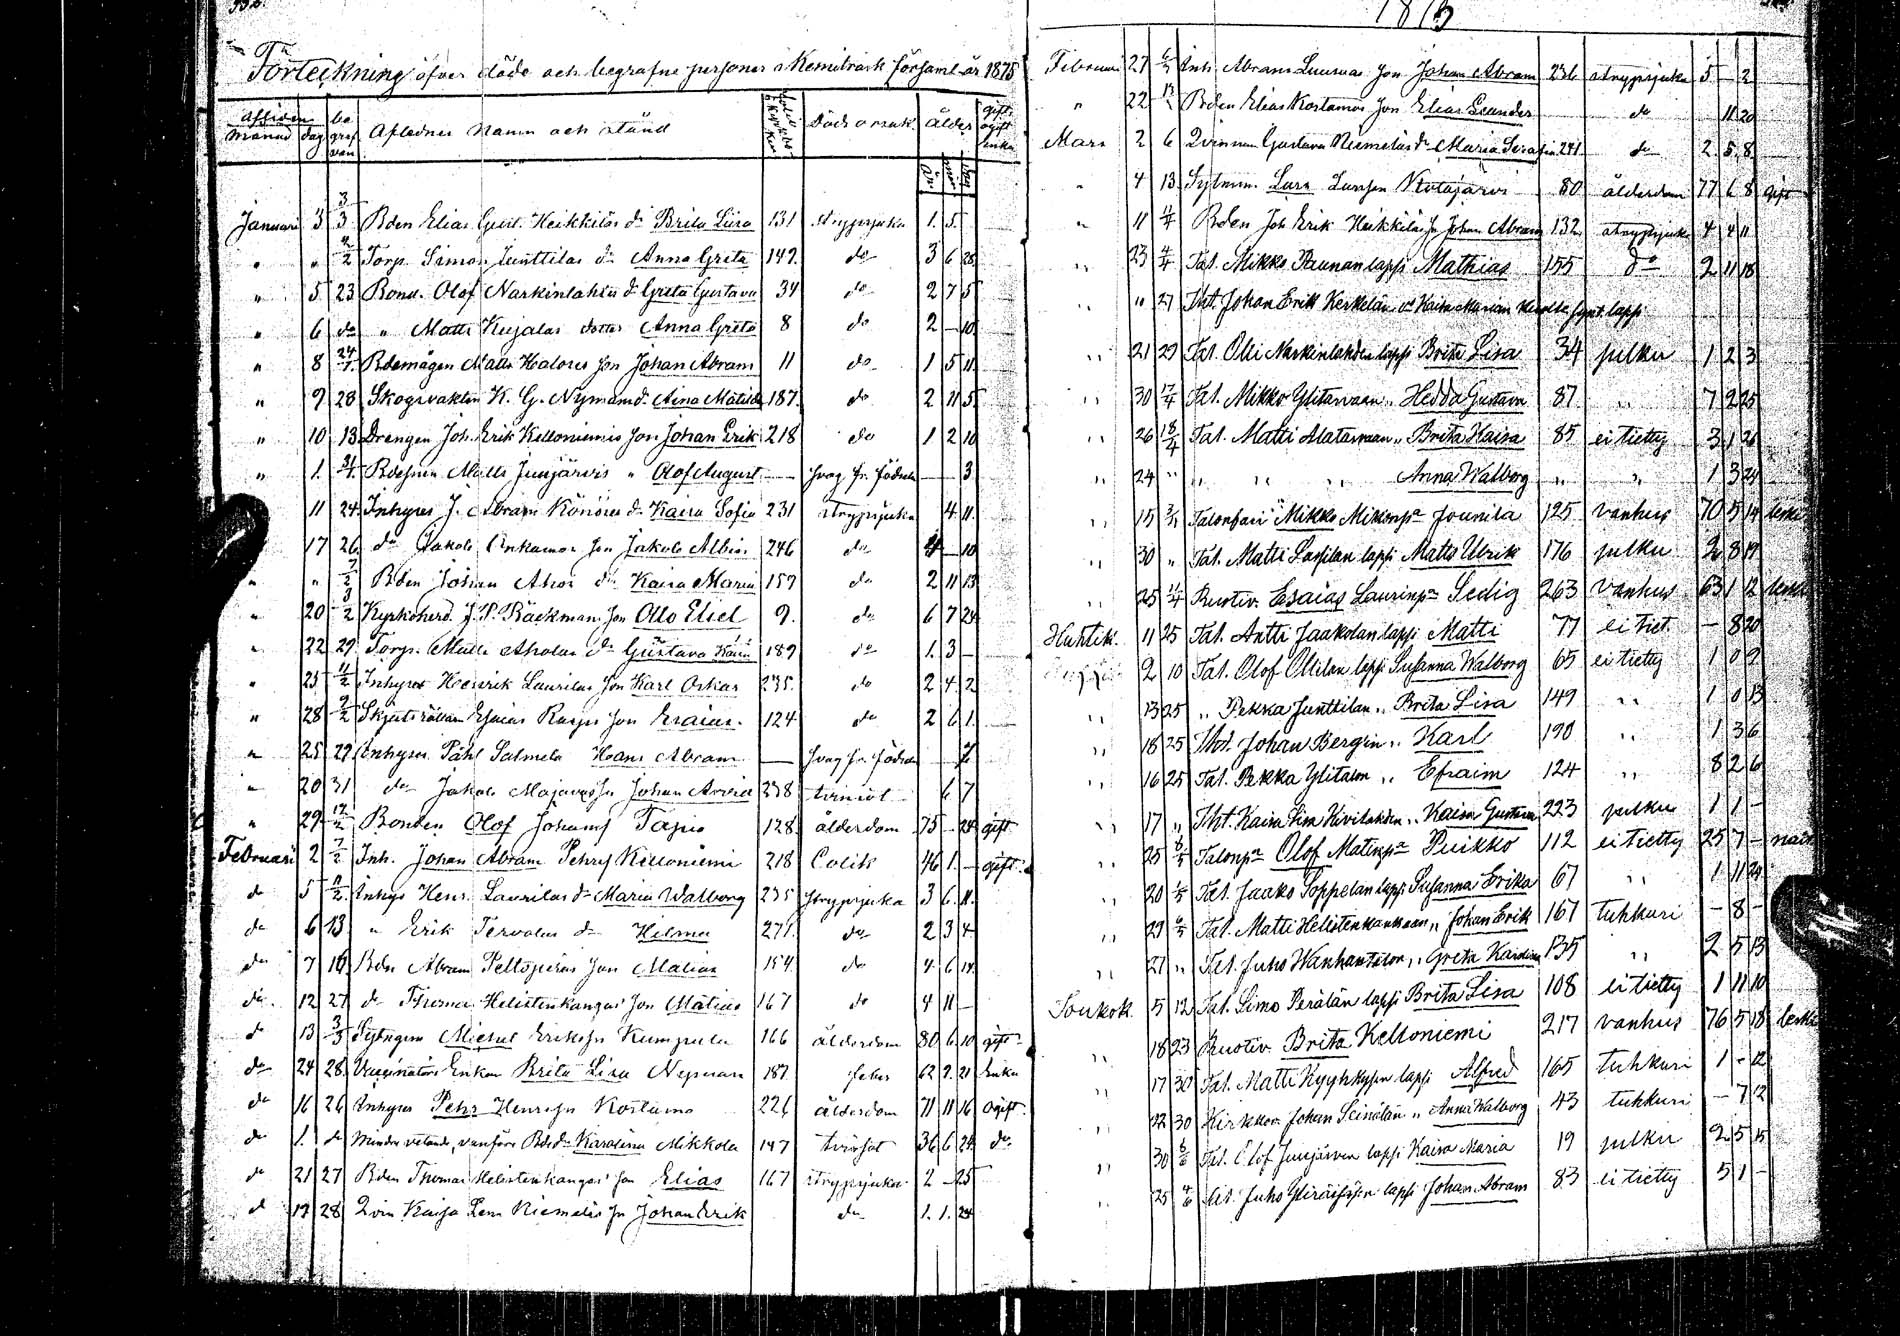 Förteckning öfver döde och begrafne personer i Kemiträsk församl. år 1875
Afliden be grafvan Aflednes namn och stånd Döds orsak. ålder gift, ogift enka
månad dag år mån dag
Januari 3 3/3 Bden Elias Gust. Heikkiläs dr Brita Lisa 131 strypsjuka 1. 5.
" " 9/2 Torp. Simon Junttilas dr Anna Greta 149. do 3 6 28
" 5 23 Bond. Olof Narkinlahtis dr Greta Gustava 34 do 2 7 5
" 6 do " Matts Kujalas dotter Anna Greta 8 do 2 — 10.
" 8 24/1. Bdemågen Matts Halones son Johan Abram 11 do 1 5 11.
" 9 23 Skogsvaktn K. G. Nyman dr Aina Matilda 187. do 2 11 5
" 10 13 Drengen Joh. Erik Kelloniemis son Johan Erik 218 do 1 2 10
" 1. 31/1. Bdesonen Matts Junjärvis " Olof August — svag fr. födseln — 3
11 24. Inhyses J. Abram Könönes dr Kaisa Sofia 231 strypsjuka 4. 11.
17 26 do Jakob son Jakob Albin 246 do 4 — 10
" " 7/2 Bden Johan Ahos dr Kaisa Maria 157 do 2 11 13
" 20 3/2 Kyrkoherd. J. P. Bäckman son Otto Eliel 9. do 6 7 24
" 22 29 Torp. Matts Aholas dr Gustava Kaisa 189 do 1. 3 —
" 23 11/2 Inhyses Henrik Laurilas son Karl Oskar 235. do 2 4. 2
" 28 9/2 Skjutsrättarn Esaias son Esaias. 124 do 2 6 1.
" 25 29 Inhyses Påhl Salmela Hans Abram. — svag fr. födseln 7
" 20 31 do Jakob Majavas son Johan Arvid 238 6 7
" 29 12/2 Bonden Olof Johansf Tapio 128. ålderdom 75 — 24 gift
Februari 2 7/2 Inh. Johan Abram Pehrsf Kelloniemi 218 Colik 46 1. — gift.
do 5 11/2. Inhys Henr. Laurilas dr Maria Walborg 235 strypsjuka 3 6. 11.
do 6 13 " Erik Tervolas dr Hilma 271. do 2 3 4.
do 7 16 Bdn Abram Peltoperäs son Matias 154. do 4. 6 14
do 12 27 do Thomas Helistenkangas' son Mattias 167 do 4 11 —
do 13 3/3 Sytngsm Michel Eriksson Kumpula 166 ålderdom 80 6. 10 gift
do 24 28 Vaccinators Enkan Brita Lisa Nyman 187 feber 62 9. 21 enka
do 16 26 Inhyses Pehr Henrsfn Kostamo 226 ålderdom 71 11 16 ogift.
do 1. do Mindre vetande, vanföre Bdedr Karolina Mikkola 147 tvinsot 36 6 24. do
do 21 27 Bden Thomas Helistenkangas' son Elias 167 strypsjuka 2 — 25
do 19 28 Qvin Kaisa Lena Niemeläs sn Johan Erik do 1. 1. 24
1875
Februari 27 6/3 Inh Abram Luusuas son Johan Abram 236 strypsjuka 5 — 2
" 22 Bden Elias Kostamos son Elias Leander do 11 20
Mars 2 6 Qvinnan Gustava Niemeläs dr Maria Serafia 241 do 2. 5. 8.
" 4 13. Sytnm. Lars Larsson Kotajärvi 80 ålderdom 77 6 8 gift
" 11 11/4 Bden Joh Erik Heikkiläs sn Johan Abram 132 strypsjuka 4 4 11
" 23 4/4 Tal. Mikko lapsi Mathias 155 do 2 11 18
" " 27 Itst. Johan Erik Kerkelän va Kaisa Marian kuolle. synt. lapsi
" 21 29 Tal. Olli Narkinlahden lapsi Brita Lisa 34 julku 1 2 3
" 30 17/4 Tal. Mikko Ylitavaan " Hedda Gustava 87 " 7 2 25
" 26 18/4 Tal. Matti Alatarvaan " Brita Kaisa 85 ei tietty 3 1 26
" 24 " " " " Anna Walborg " " 1 3 24
" 15 Talonfaari Mikko Mikonpa Jounila 125 vanhus 70 5 14 leski
" 30 " Tal. Matti lapsi Matts Ulrik 176 julku 2 8 19
" 25 11/4 Ruotiv. Esaias Laurinpa Sedig 263 vanhus 63 1 12 leski
Huhtik. 11 25 Tal. Antti Jaakolan lapsi Matti 77 ei tiet. — 8 20
2 10 Tal. Olof Ollilan lapsi Susanna Walborg 65 ei tietty 1 0 9
" 13 25 " Pekka Junttilan " Brita Lisa 149 " 1 0 13
" 18 25 Itst. Johan Bergin " Karl 190 " 1 3 6
" 16 25 Tal. Pekka Ylitalon " Efraim 124 " 8 2 6
" 17 " Itst. Kaisa Lisa Kivilahden " Kaisa Gustava 223 julku 1 1 —
" 25 6/5 Talonpa Olof Matinpa Puikko 112 ei tietty 25 7 — nain
" 20 1/5 Tal. Jaako Soppelan lapsi Susanna Erika 67 " 1 11 24
" 29 6/5 Tal. Matti Helistenkankaan " Johan Erik 167 tuhkuri — 8 —
" 27 " Tal. Juho Wanhantalon " Greta Karolina 135 " 2 5 13
Toukok. 5 12 Tal. Simo Perälän lapsi Brita Lisa 108 ei tietty 1 11 10
" 18 23 Ruotiv. Brita Kelloniemi 217 vanhus 76 5 18 leski
" 17 30 Tal. Matti lapsi Alfred 165 tuhkuri 1 - 12
" 22 30 Kirkkov. Johan Leinälän " Anna Walborg 43 tuhkuri — 7 12
" 30 6/6 Tal. Olof Junjärven lapsi Kaisa Maria 19 julku 2 5 15
" 25 4/6 Tal. Juho lapsi Johan Abram 83 ei tietty 5 1 —